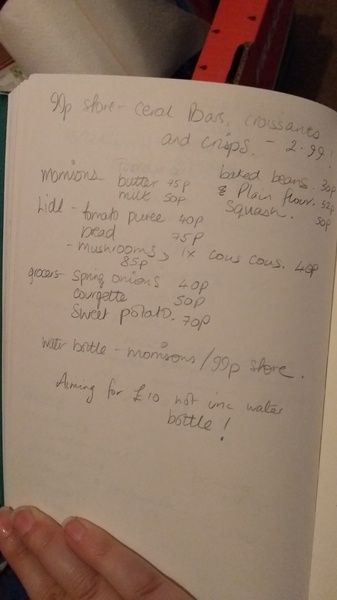 99p store - Ceral Bars, croissants
and crisps. - 2.99!
Morrisons butter 75p baked beans. 30p
milk 50p & Plain flour. 52p
Lidl - tomato puree 40p Squash. 50p
bead 75p
- mushrooms, 1x cous cous. 40p
85p
grocers - Spring onions 40p
courgette 50p
Sweet potato. 70p
water bottle - morrisons / 99p store.
Aiming for £10 not inc water
bottle!